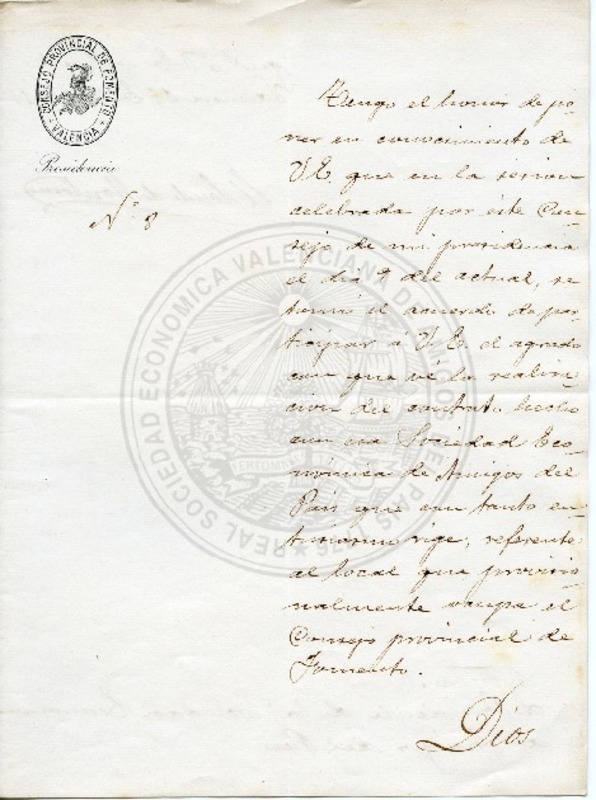 CONSEJO PROVINCIAL DE FOMENTO
VALENCIA
Presidencia
N.º 8
Tengo el honor de po-
ner en conocimiento de
V.E. que en la sesion
celebrada por este Con-
sejo de mi presidencia
el dia 7 del actual, se
tomó el acuerdo de par-
ticipar á V.E. el agrado
con que vé la realiza-
cion del contrato hecho
con esa Sociedad Eco-
nómica de Amigos del
País que con tanto en-
tusiasmo rige, referente
al local que provisio-
nalmente ocupa el
Consejo provincial de
Fomento.
Dios
REAL SOCIEDAD ECONOMICA VALENCIANA DE AMIGOS DEL PAIS 1776